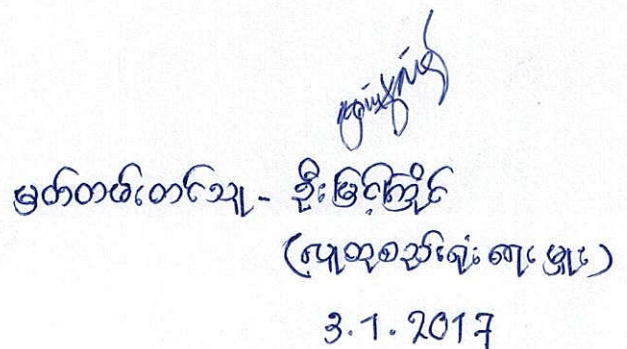 မှတ်တမ်းတင်သူ - ဦးမြင့်ကြိုင်
(လူထုစည်းရုံးရေးမှူး)
3.1.2017